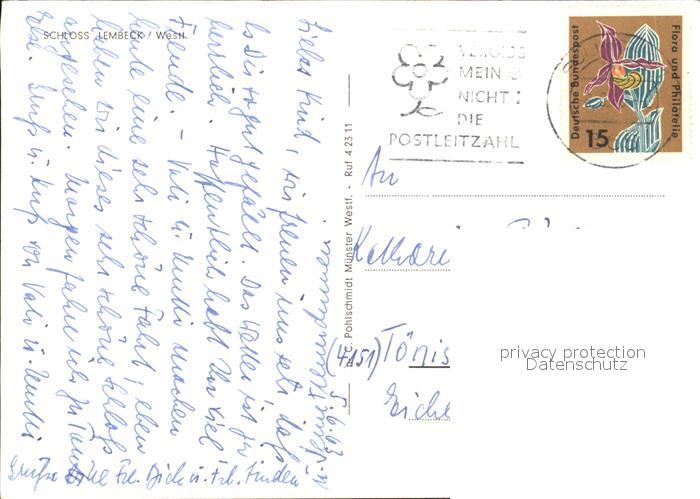 SCHLOSS LEMBECK / Westf.
5.6.63
Liebes Kind, wir freuen uns sehr, daß
es Dir so gut gefällt. Das Wetter ist ja
herrlich. Hoffentlich habt Ihr viel
Freude. – Vati u. Mutti machen
heute eine sehr schöne Fahrt, eben
haben wir dieses sehr schöne Schloß
angesehen. Morgen fahre ich zu Tante
Gruß u. Kuß von Vati u. Mutti
Grüße Frl. u. Frl.
C. Pohlschmidt Münster Westf. - Ruf 4 23 11
VERGISS
MEIN
NICHT
DIE
POSTLEITZAHL
Deutsche Bundespost
Flora und Philatelie
15
An
(4151) Tönis
privacy protection
Datenschutz